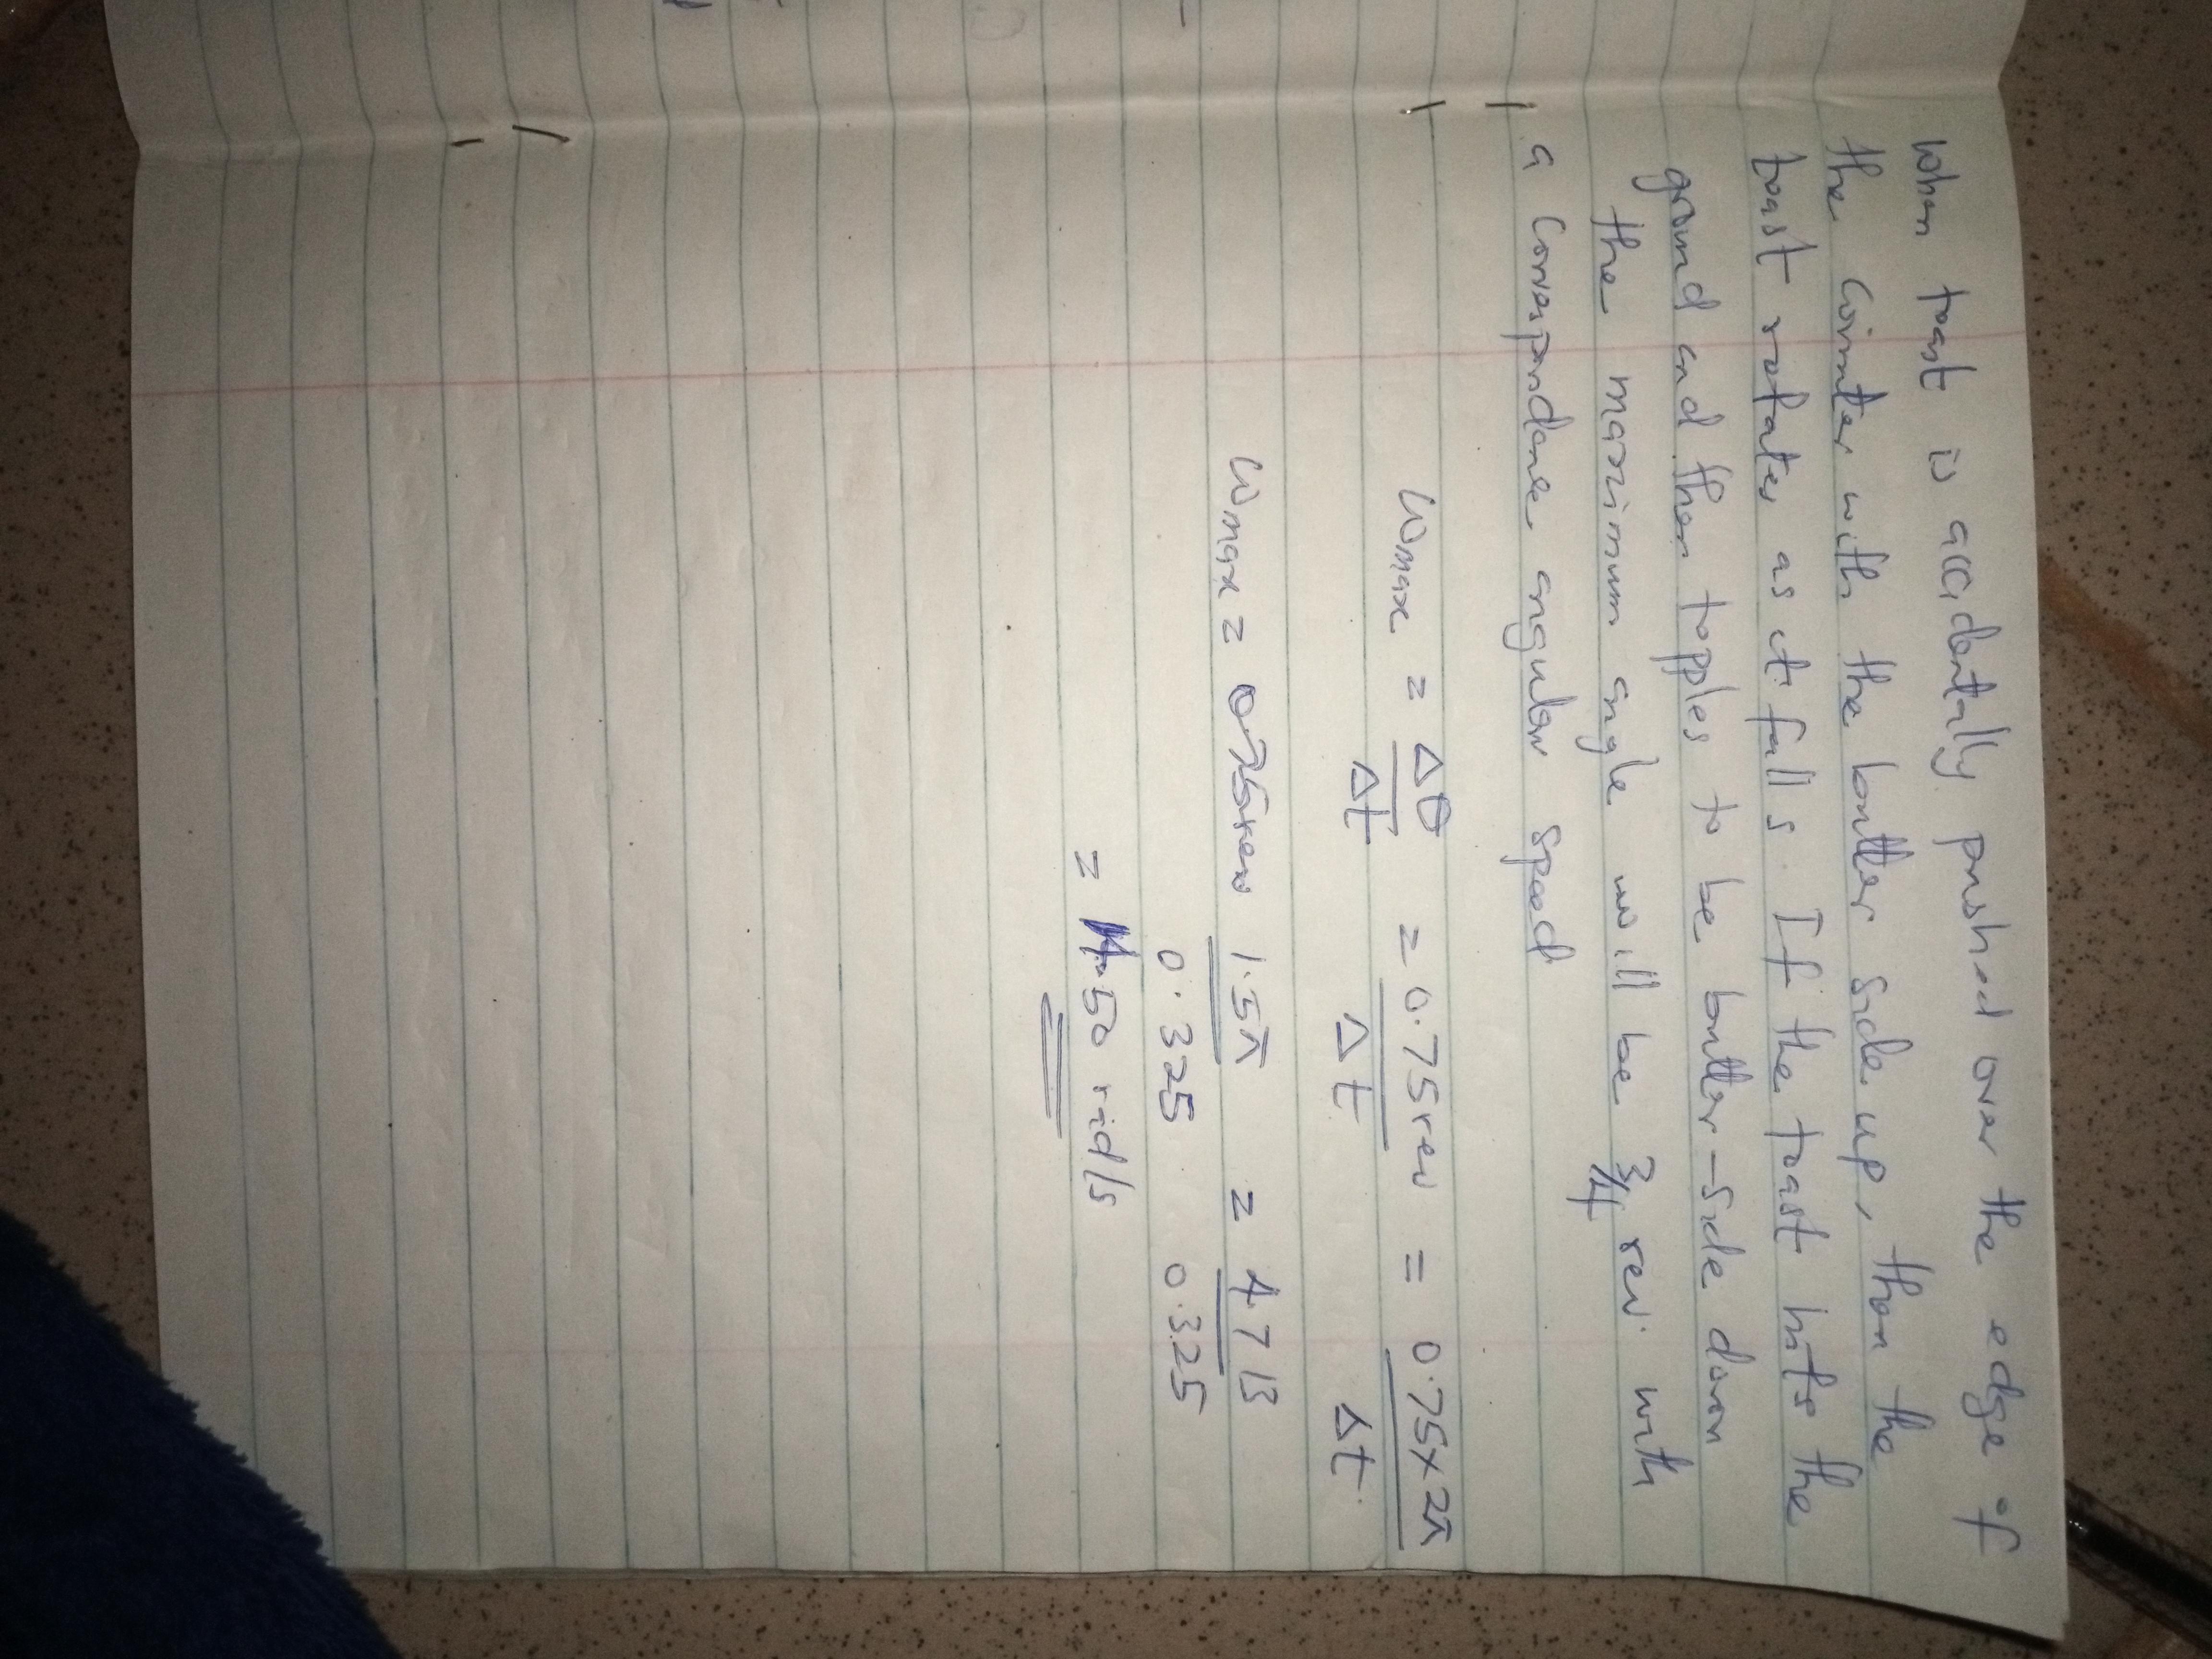 when toast is accidentally pushed over the edge of
the counter with the butter side up, then the
toast rotates as it falls. If the toast hits the
ground and then topples to be butter-side down
the maximum angle will be 3/4 rev. with
a correspondane angular speed
Wmax = Δθ/Δt = 0.75rev/Δt = 0.75×2π/Δt.
Wmax = 1.5π/0.325 = 4.713/0.325
= .50 rad/s